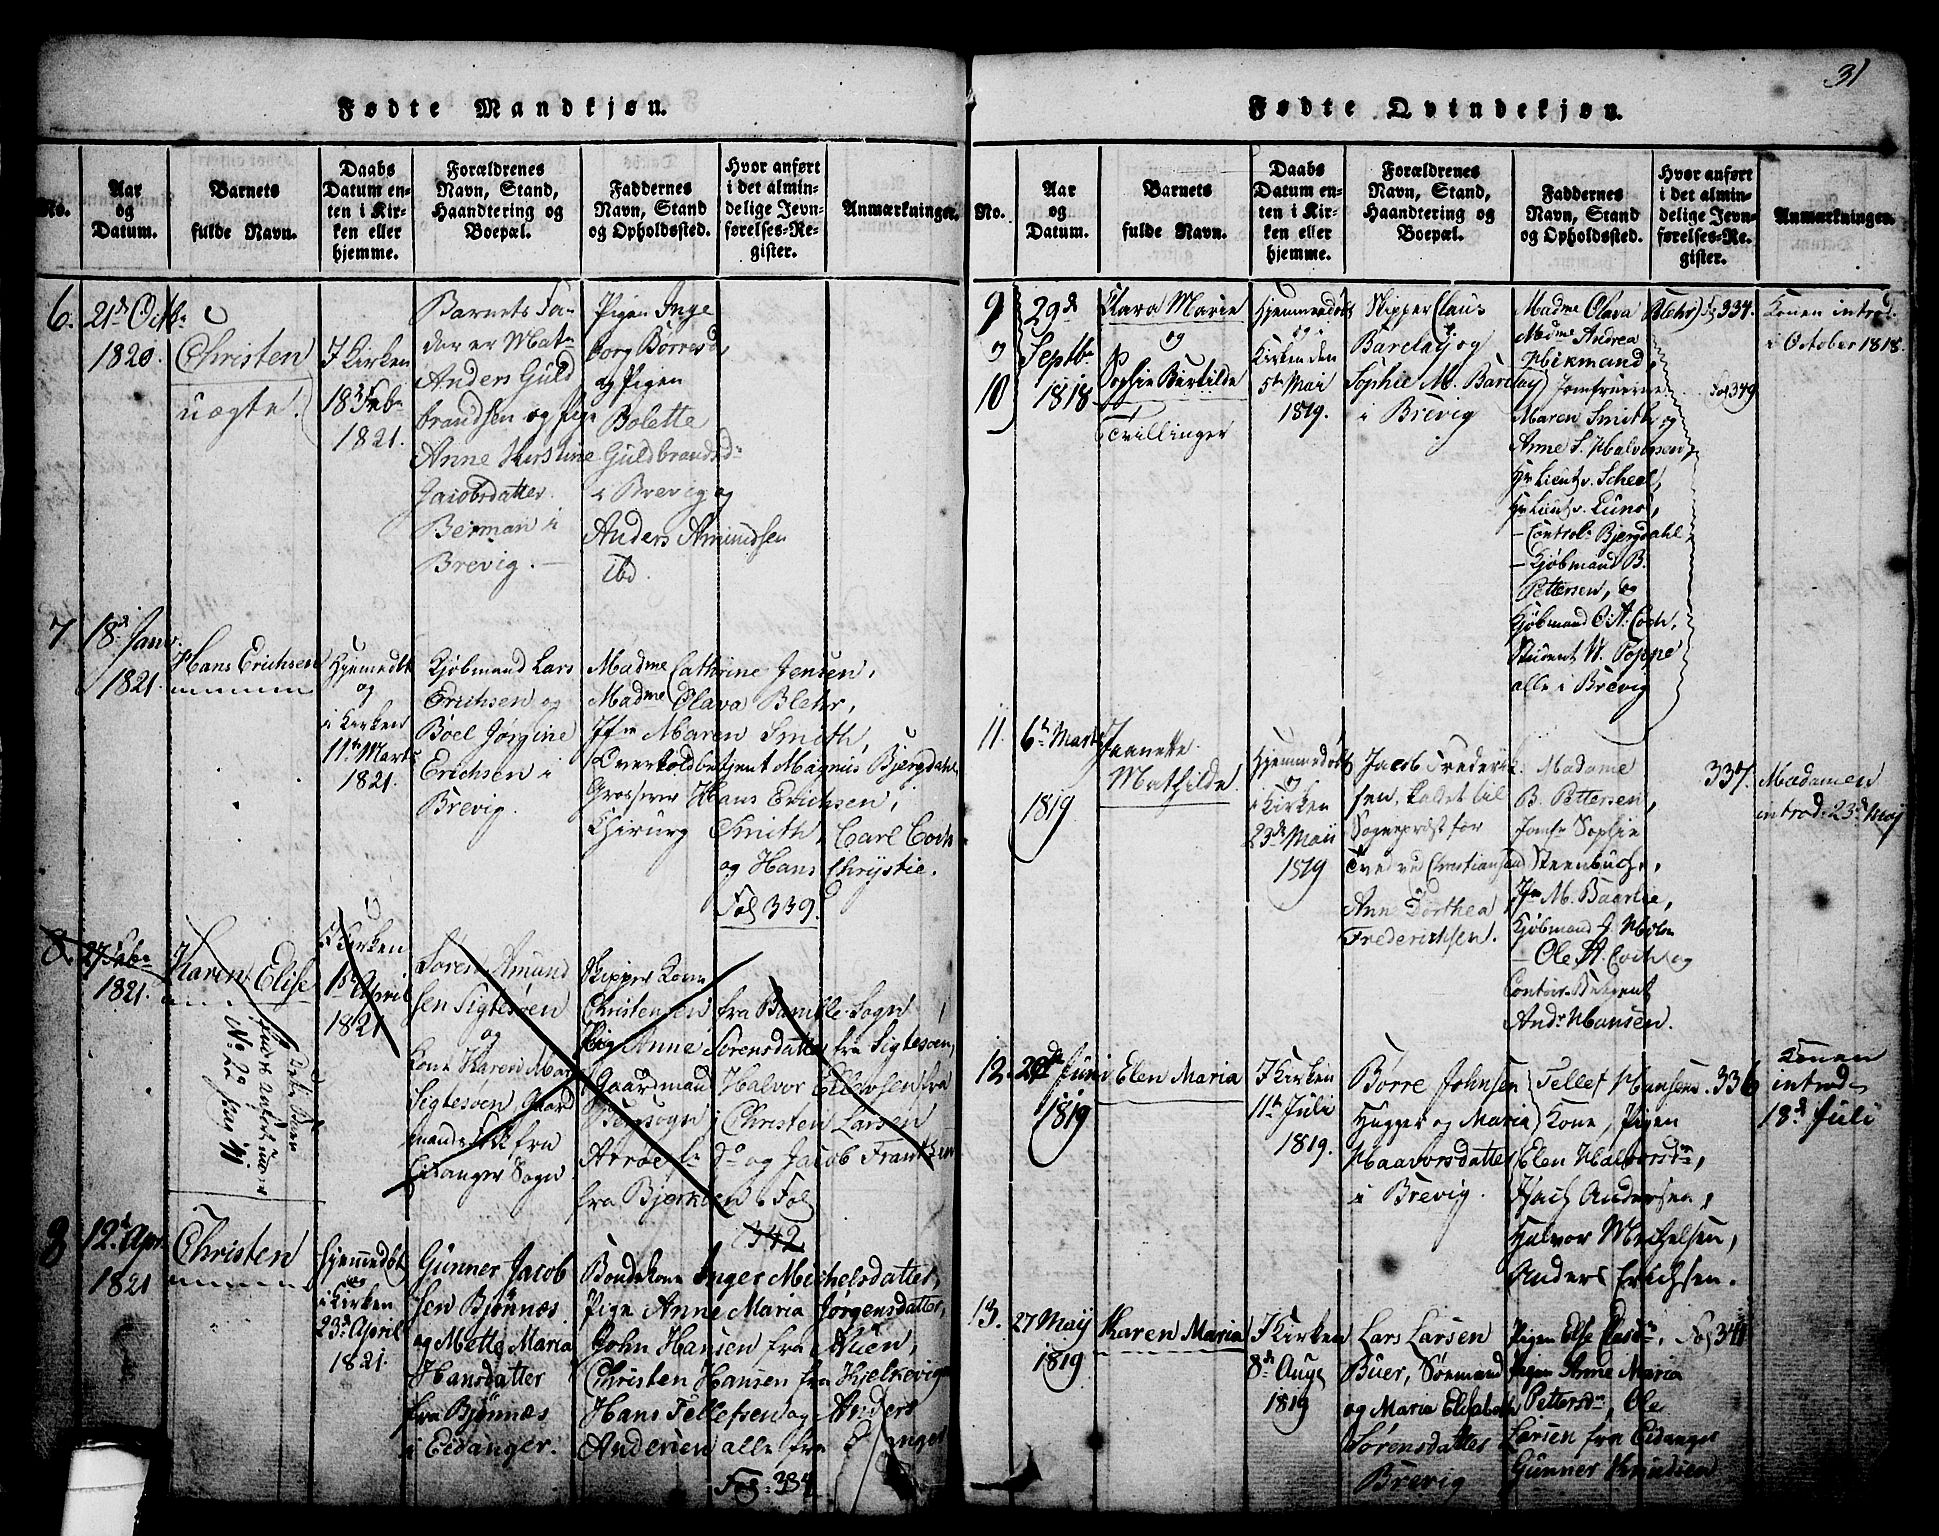 31
Fødte Mandkjøn.
No.
Aar
og
Datum.
Barnets
fulde Navn.
Daabs
Datum en-
ten i Kir-
ken eller
hjemme.
Forældrenes
Navn, Stand,
Haandtering og
Boepæl.
Faddernes
Navn, Stand
og Opholdssted.
Hvor anført
i det almin-
delige Jevn-
førelses-Re-
gister.
Anmærkninger.
6.
21de Octbr
1820.
Christen
uægte.
I Kirken
18de Febr
1821.
Barnets Fa-
der er Mat.
Anders Guld
brandsen og Pige
Anne Kirstine
Jacobsdatter
Berman i
Brevig.
Pigen Inge
borg Børresd,
og Pigen
Bolette
Guldbrandsd.
i Brevig og
Anders Amundsen
ibd.
7.
18de Janv.
1821.
Hans Erichsen
Hjemedøbt
og
i Kirken
11te Marts
1821.
Kjøbmand Lars
Erichsen og
Boel Jørgine
Erichsen i
Brevig.
Madme Cathrine Jensen,
Madme Olava Blehr,
Jfr Maren Smith,
Overtoldbetjent Magnus Bjergdahl,
Grosserer Hans Erichsen,
Chirurg Smith, Carl Coch
og Hans Chrystie.
Fol 339.
8.
27 Febr
1821.
Karen Elise
I Kirken
1ste April
1821
Søren Amund
sen Sigtesøen
og
Kone Karen Mar
Sigtesøen, Gaard
mandsfolk fra
Eidanger Sogn
Skipper Kone
Christensen fra Bamble Sogn
Pig Anne Sørensdatter fra Sigtesøen,
Gaardmand Halvor Ellevsen fra
Christen Larsen
do og Jacob Frantzen
fra Bjerkøen. Fol
342
8
12te Apr.
1821
Christen
Hjemmedøbt
og
i Kirken
23de April
1821.
Gunner Jacob
sen Bjønnæs
og Mette Maria
Hansdatter
fra Bjønnæs
i Eidanger.
Bondekone Inger Michelsdatter,
Pige Anne Maria Jørgensdatter,
John Hansen fra
Christen Hansen fra Kjelsevig
Hans Tellefsen og Anders
Andersen alle fra Eidanger
Fog: 334
Fødte Qvindekjøn.
No.
Aar
og
Datum.
Barnets
fulde Navn.
Daabs
Datum en-
ten i Kir-
ken eller
hjemme.
Forældrenes
Navn, Stand,
Haandtering og
Boepæl.
Faddernes
Navn, Stand
og Opholdssted.
Hvor anført
i det almin-
delige Jevn-
førelses-Re-
gister.
Anmærkninger.
9
og
10
29de
Septbr
1818
Clara Marie
og
Sophie Bertilde
Tvillinger
Hjemmedøbt
og i
Kirken den
5te Mai
1819.
Skipper Claus
Barclay og
Sophie M. Barclay
i Brevig
Madme Olava Blehr,
Madme Andrea
Wiekmand,
Jomfruerne
Maren Smith og
Anne S. Halvorsen,
Hr Lieut v. Scheel,
Hr Lieut v. Luno,
Controlr Bjergdahl,
Kjøbmand B.
Pettersen, og
Kjøbmand O. A. Coch,
Student W. Poppe
alle i Brevig
Fog 334.
Fol 349
Konen introd.
i October 1818.
11.
6te Marts
1819
Jeanette
Mathilde
Hjemmedøbt
og
i Kirken
23de Maii
1819
Jacob Frederik
sen, kaldet til
Sognepræst for
Tved ved Christiansand
Anne Dorthea
Frederichsen.
Madame
B. Pettersen,
Jomfr Sophie
Steenbuch,
Jfr M. Baarlie,
Kjøbmand J. Holm
Ole A. Coch og
Contoir-Betjent
Andr Hansen.
337.
Madamen
introd. 23de Maij
12.
20de Juni
1819
Elen Maria
I Kirken
11te Juli
1819.
Børre Johnsen
Hugger og Maria
Haavorsdatter
i Brevig.
Tellef Hansens
Kone, Pigen
Elen Halvorsdr,
Isach Andersen,
Halvor Michelsen,
Anders Erichsen.
336
Konen
introd
18de Juli
13.
27 Maij
1819
Karen Maria
I Kirken
8de Aug
1819
Lars Larsen
Buer, Sømand
og Maria Elisabeth
Sørensdatter
Brevig
Pigen Else
Pigen Anne Maria
Pettersdr, Ole
Larsen fra Eidanger
Gunner Knudsen